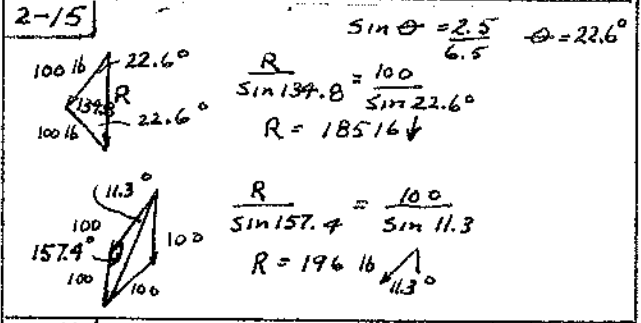 2-15
sin θ = 2.5/6.5 θ = 22.6°
100 lb 22.6°
134.8 R
100 lb 22.6°
R/sin 134.8 = 100/sin 22.6°
R = 185 lb ↓
11.3°
100
157.4° 100
100 100
R/sin 157.4 = 100/sin 11.3
R = 196 lb 11.3°